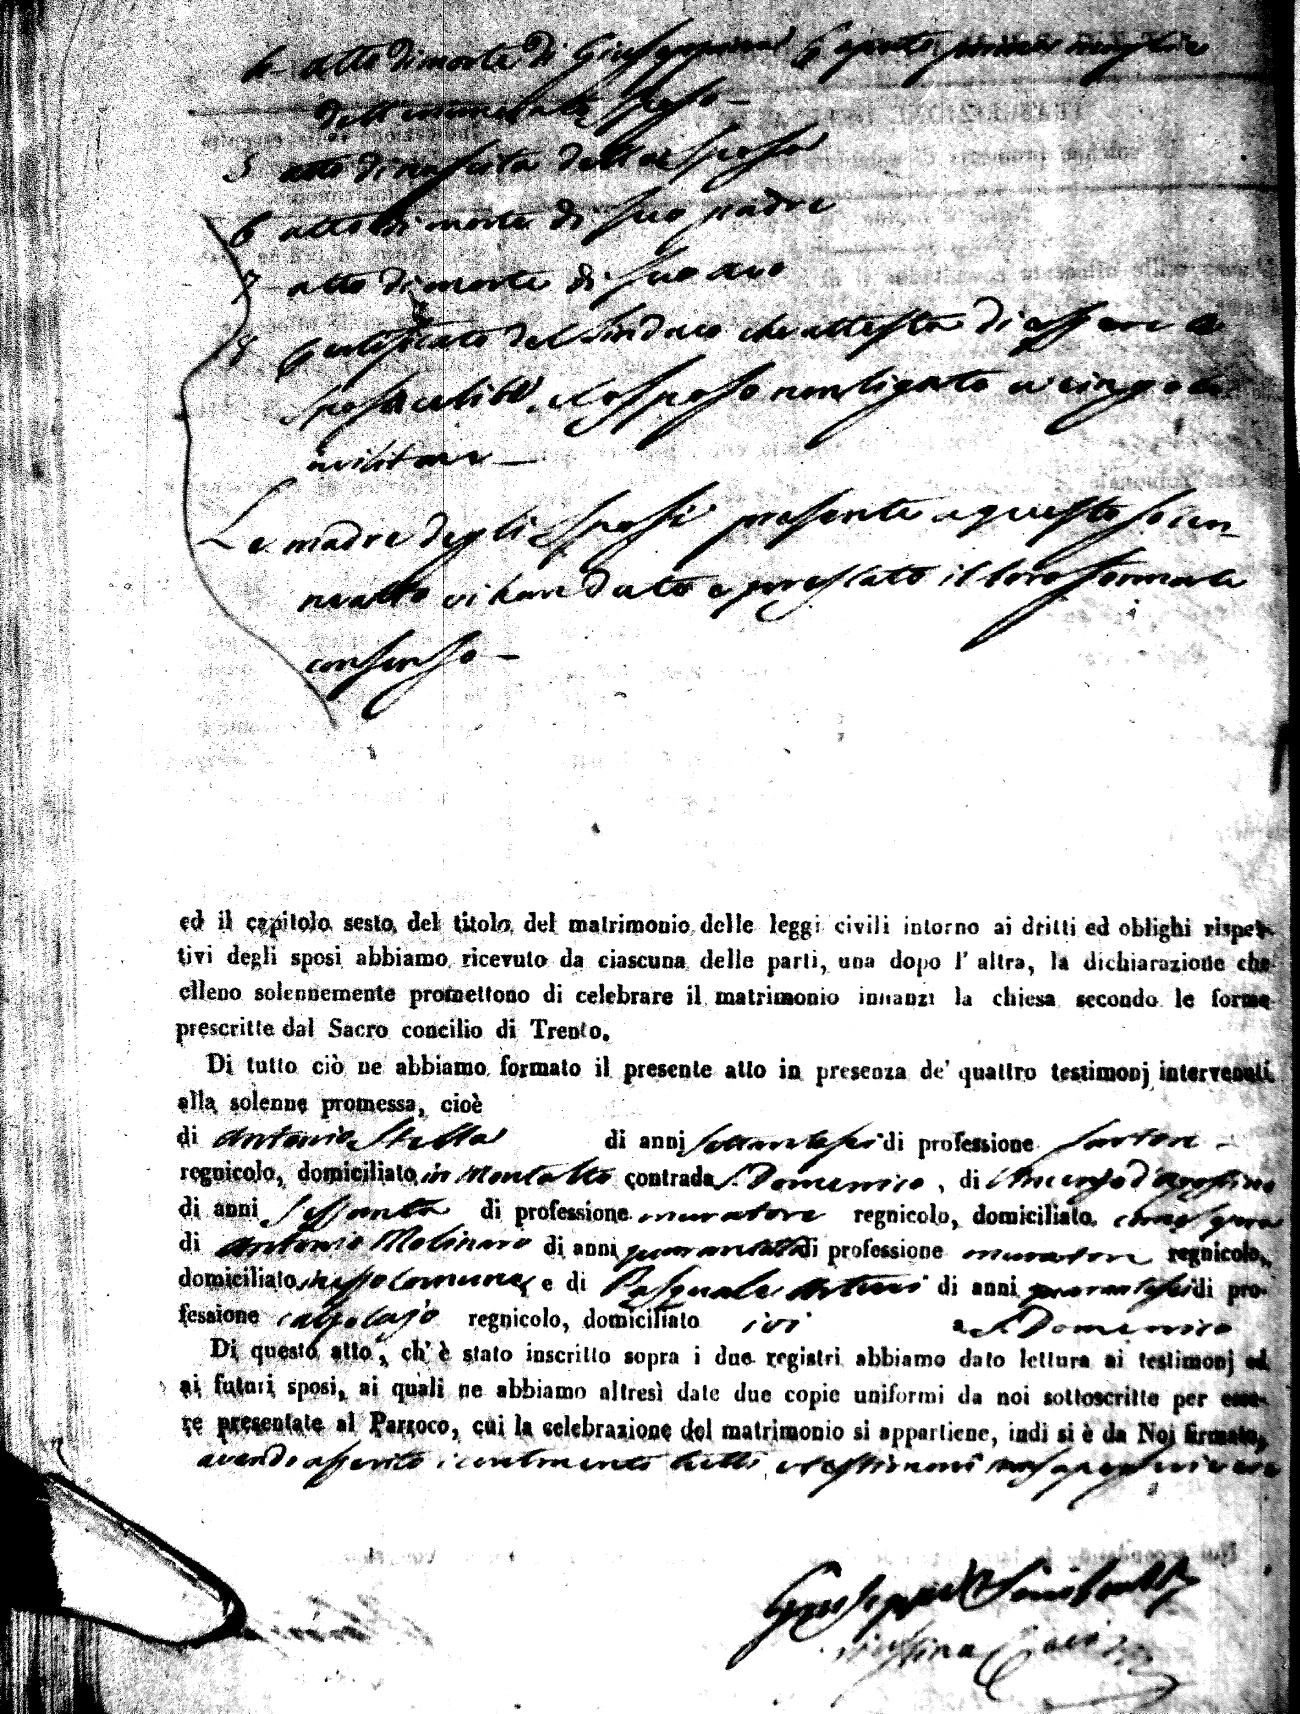 4- atto di morte di Giuseppina Esposito prima moglie
dell'enunciato sposo -
5 atto di nascita della sposa
6 atto di morte di suo padre
7 atto di morte di suo avo
8 Certificato del Sindaco che attesta di essere la
sposa celibe, e lo sposo non ligato a cingolo
militare -
Le madre degli sposi presente a questo solen
ne atto vi han dato e prestato il loro formale
consenso -
ed il capitolo sesto del titolo del matrimonio delle leggi civili intorno ai dritti ed oblighi rispet-
tivi degli sposi abbiamo ricevuto da ciascuna delle parti, una dopo l' altra, la dichiarazione che
elleno solennemente promettono di celebrare il matrimonio innanzi la chiesa secondo le forme
prescritte dal Sacro concilio di Trento.
Di tutto ciò ne abbiamo formato il presente atto in presenza de' quattro testimonj intervenuti
alla solenne promessa, cioè
di Antonio Stella di anni settantasei di professione sartore -
regnicolo, domiciliato in Montalto contrada S. Domenico, di Vincenzo d'Agostino
di anni sessanta di professione muratore regnicolo, domiciliato
di Antonio Molinaro di anni di professione muratore regnicolo,
domiciliato stesso comune, e di Pasquale Arturi di anni quarantasei di pro-
fessione calzolajo regnicolo, domiciliato ivi a S. Domenico
Di questo atto, ch' è stato inscritto sopra i due registri abbiamo dato lettura ai testimonj ed
ai futuri sposi, ai quali ne abbiamo altresì date due copie uniformi da noi sottoscritte per esse-
re presentate al Parroco, cui la celebrazione del matrimonio si appartiene, indi si è da Noi firmato,
avendo asserito i contraenti tutti, e testimoni non saper scrivere
Giuseppe